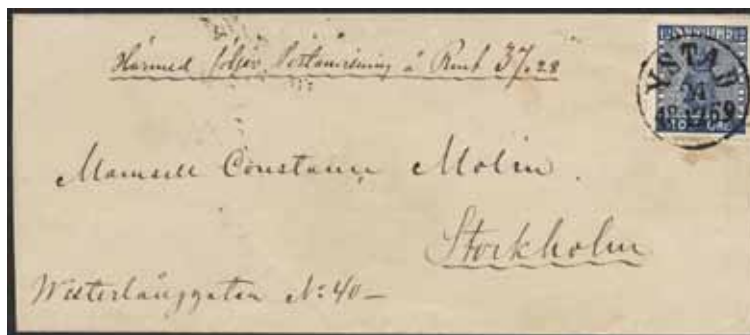 Härmed följer Postanvisning å Rmt 37.28
YSTAD
24
1859
Mamsell Constance Molin.
Stockholm
Westerlånggatan No: 40 —